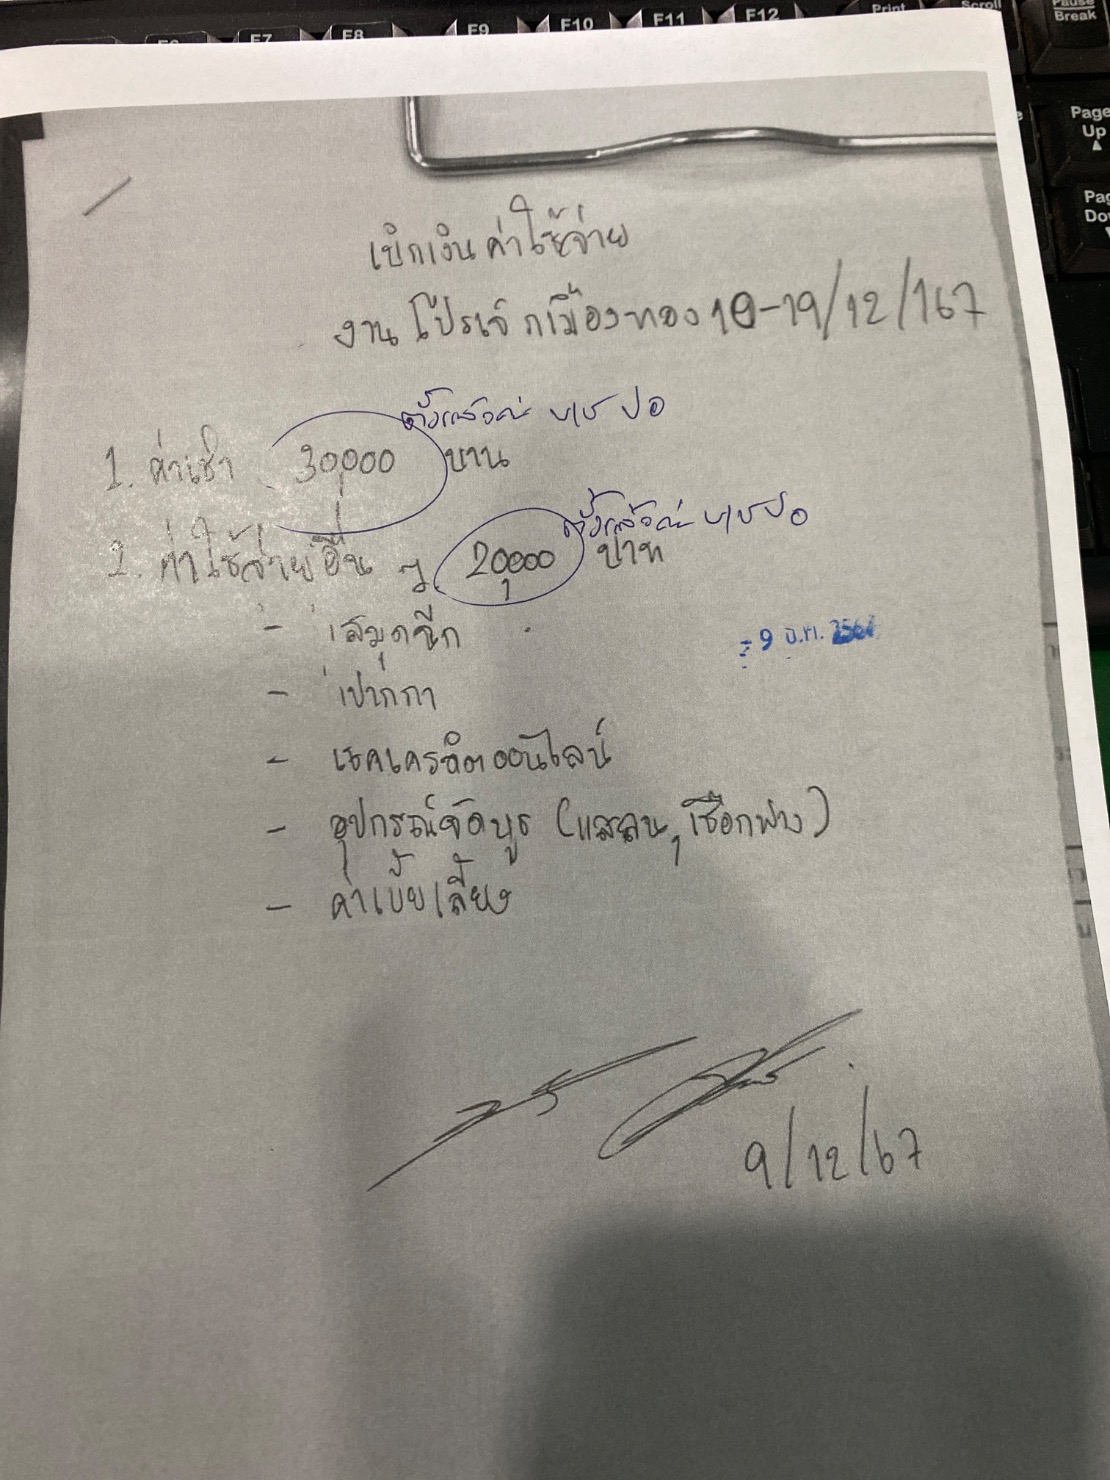 F6 F7 F8 F9 F10 F11 F12 Print Scroll Pause Break
Page Up
เบิกเงินค่าใช้จ่าย
งานโปรเจ็กเมืองทอง 10-19/12/67
ตั้งแล้วค่ะ
1. ค่าเช่า 30,000 บาท
ตั้งแล้วค่ะ
2. ค่าใช้จ่ายอื่น ๆ 20,000 บาท
- สมุดฉีก
- 9 ธ.ค. 2567
- ปากกา
- เชคเครดิตออนไลน์
- อุปกรณ์จัดบูธ (แสลน, เชือกฟาง)
- ค่าเบี้ยเลี้ยง
9/12/67